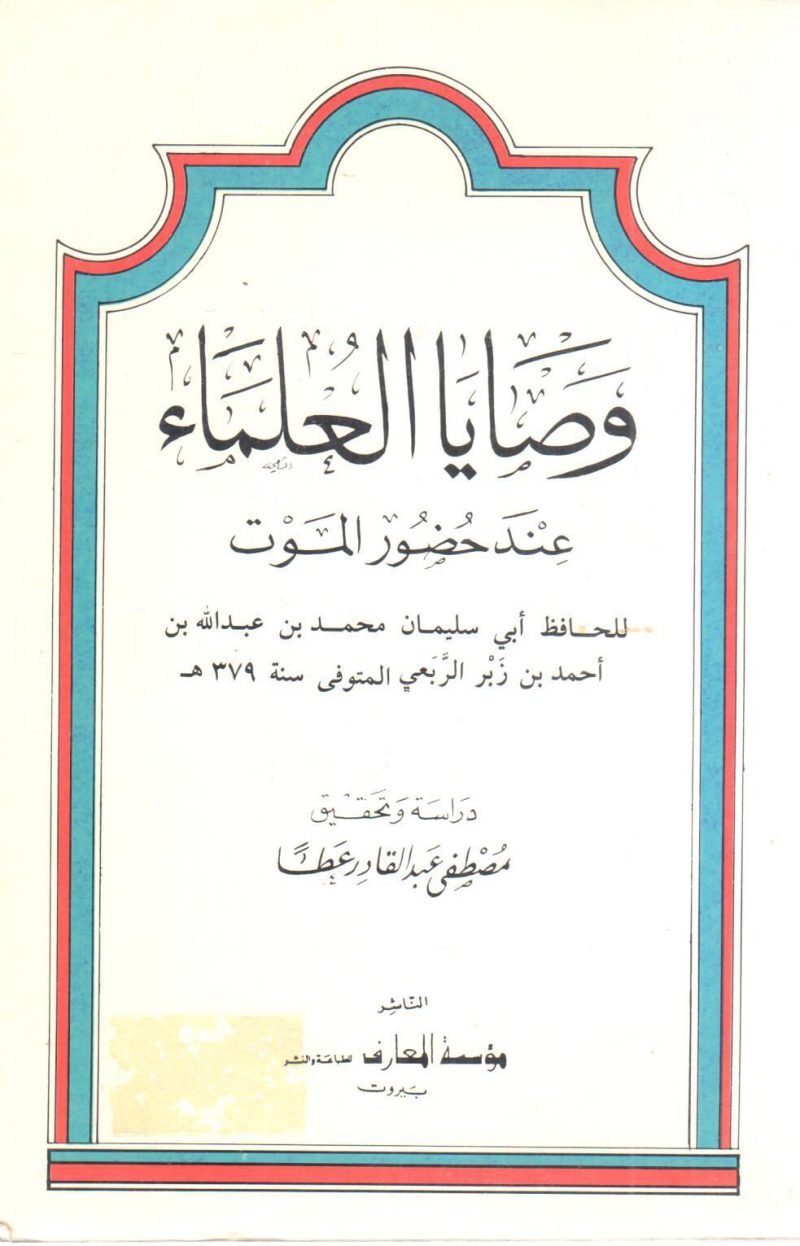 وَصَايَا العُلمَاء
عِنْدَ حُضُور المَوْت
للحافظ أبي سليمان محمد بن عبدالله بن
أحمد بن زَبْر الرَّبَعي المتوفى سنة ٣٧٩ هـ
دَرَاسَة وَتحَقيق
مُصْطفى عَبد القَادِر عَطَا
النَّاشِر
مؤسسة المعارف للطباعة والنشر
بَيروت